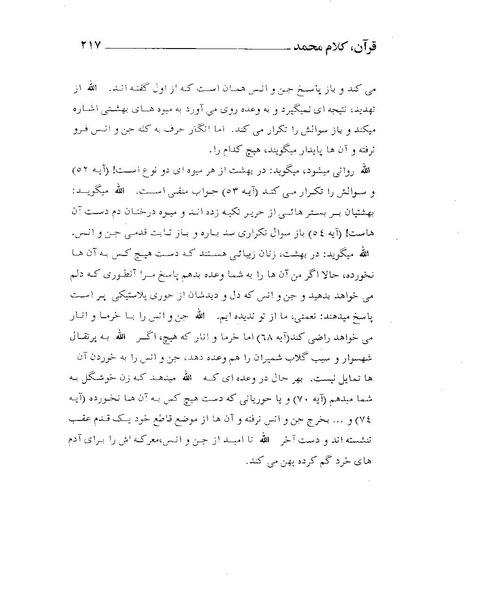 قرآن، کلام محمد ــــــــــــــــــــــــ ۲۱۷
می کند و باز پاسخ جن و انس همان است که از اول گفته اند. الله از
تهدید، نتیجه ای نمیگیرد و به وعده روی می آورد به میوه های بهشتی اشاره
میکند و باز سوالش را تکرار می کند. اما انگار حرف به کله جن و انس فرو
نرفته و آن ها پایدار میگویند، هیچ کدام را.
الله روانی میشود، میگوید: در بهشت از هر میوه ای دو نوع است! (آیه ۵۲)
و سوالش را تکرار می کند (آیه ۵۳) جواب منفی است. الله میگوید:
بهشتیان بر بستر هائی از حریر تکیه زده اند و میوه درختان دم دست آن
هاست! (آیه ۵۴) باز سوال تکراری سد باره و باز ثابت قدمی جن و انس.
الله میگوید: در بهشت، زنان زیبائی هستند که دست هیچ کس به آن ها
نخورده، حالا اگر من آن ها را به شما وعده بدهم پاسخ مرا آنطوری که دلم
می خواهد بدهید و جن و انس که دل و دیدشان از حوری پلاستیکی پر است
پاسخ میدهند: نعمتی، ما از تو ندیده ایم. الله جن و انس را با خرما و انار
می خواهد راضی کند(آیه ۶۸) اما خرما و انار که هیچ، اگر الله به پرتقال
شهسوار و سیب گلاب شمیران را هم وعده دهد، جن و انس را به خوردن آن
ها تمایل نیست. بهر حال در وعده ای که الله میدهد که زن خوشگل به
شما میدهم (آیه ۷۰) و یا حوریانی که دست هیچ کس به آن ها نخورده (آیه
۷۴) و ... بخرج جن و انس نرفته و آن ها از موضع قاطع خود یک قدم عقب
ننشسته اند و دست آخر الله نا امید از جن و انس،معرکه اش را برای آدم
های خرد گم کرده بهن می کند.